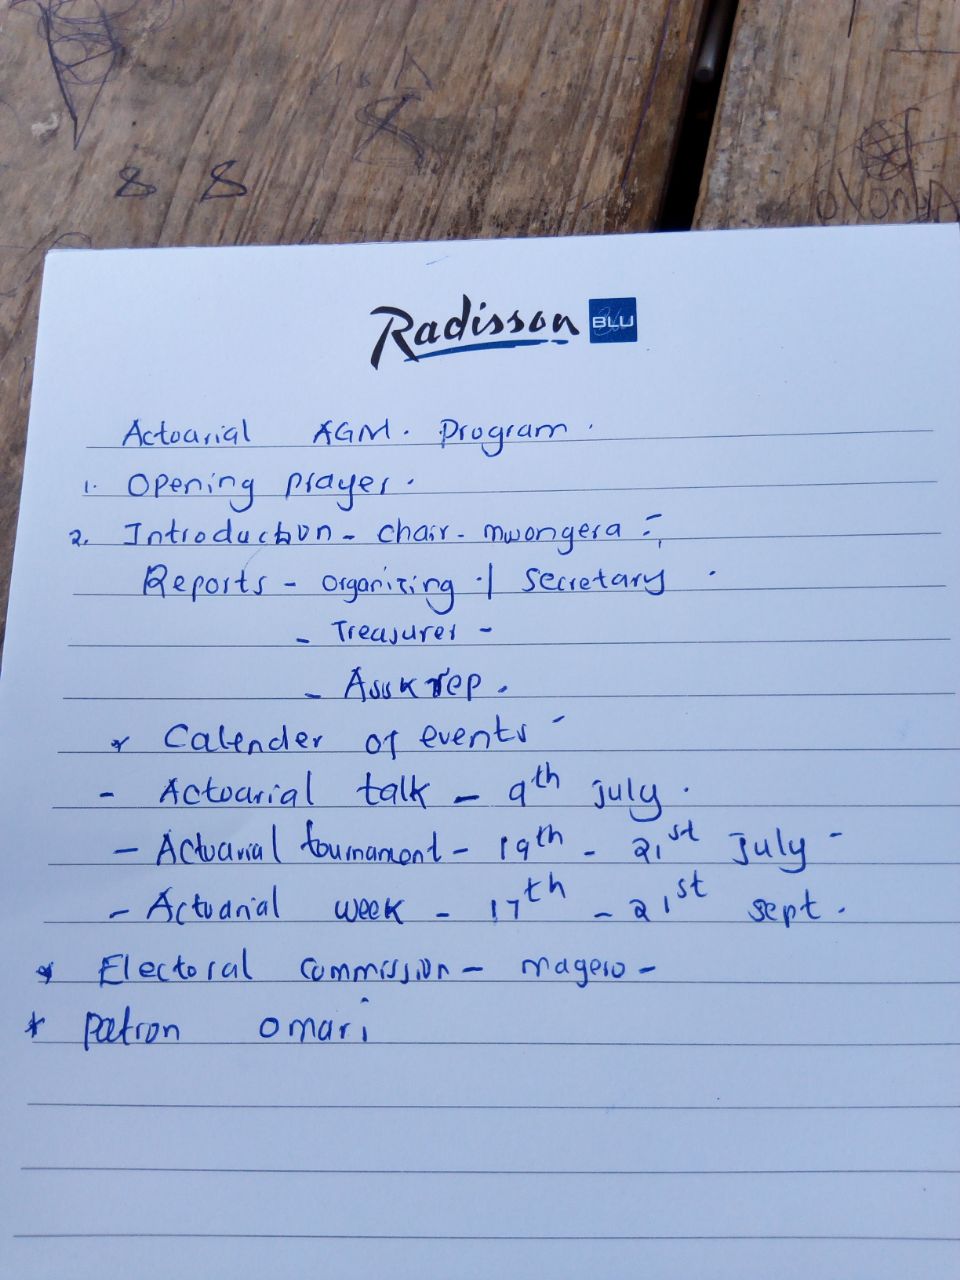 8 8
Radisson BLU
Actuarial AGM. Program.
1. Opening prayer.
2. Introduction - chair - mwongera -
Reports - organizing | secretary .
- Treasurer -
- Assk rep.
* Calender of events -
- Actuarial talk - 9th july.
- Actuarial tournament - 19th - 21st July -
- Actuarial week - 17th - 21st sept.
* Electoral commission - magero -
* patron omari